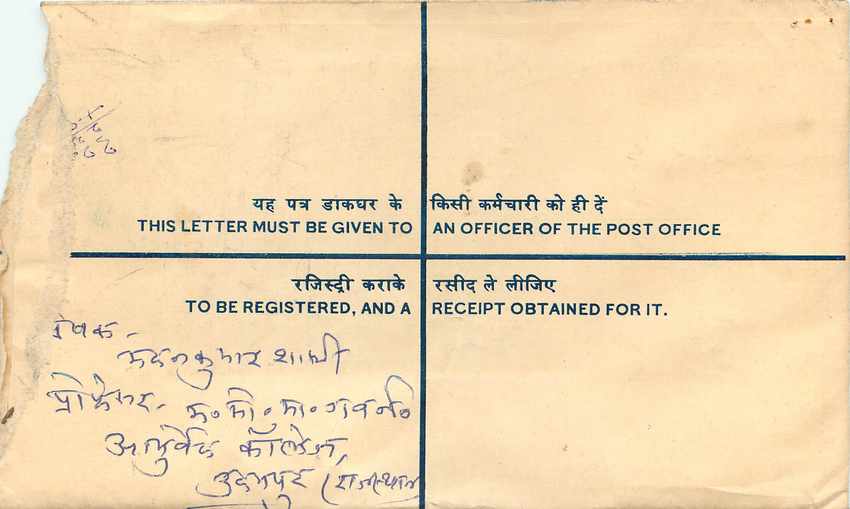 यह पत्र डाकघर के किसी कर्मचारी को ही दें
THIS LETTER MUST BE GIVEN TO AN OFFICER OF THE POST OFFICE
रजिस्ट्री कराके रसीद ले लीजिए
TO BE REGISTERED, AND A RECEIPT OBTAINED FOR IT.
प्रेषक -
मदनकुमार शास्त्री
प्रोफेसर - म० मो० मा० गवर्न०
आयुर्वेद कॉलेज,
उदयपुर (राजस्थान)